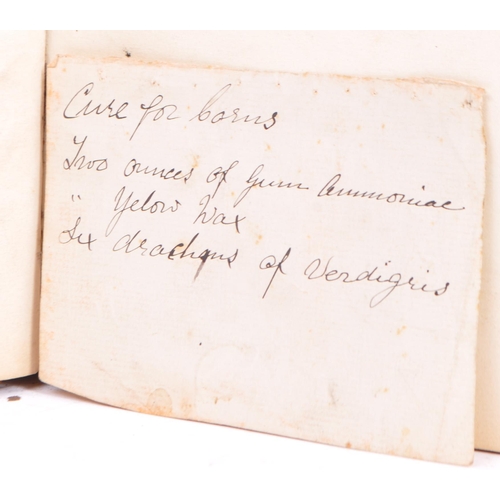 Cure for Corns
Two ounces of Gum Ammoniac
" Yelow Wax
Six drachms of Verdigris